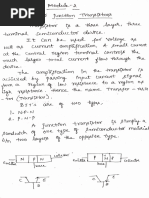 Module-2
Junction Transistors
Transistor is a three layer, three
terminal semiconductor device
It can be used for voltage as
well as current amplification. A small current
at the central region terminal controls the
much larger total current flow through the
device.
The amplification in the transistor is
achieved by passing input current signal
from a region of low resistance to a region of
high resistance
tor (Transistor).
BJT's are of two types
1. N-P-N
2. P-N-P
A junction transistor is simply a
sandwich of one type of semiconductor material
b/w two layers of
N P N
P N P
E C
B